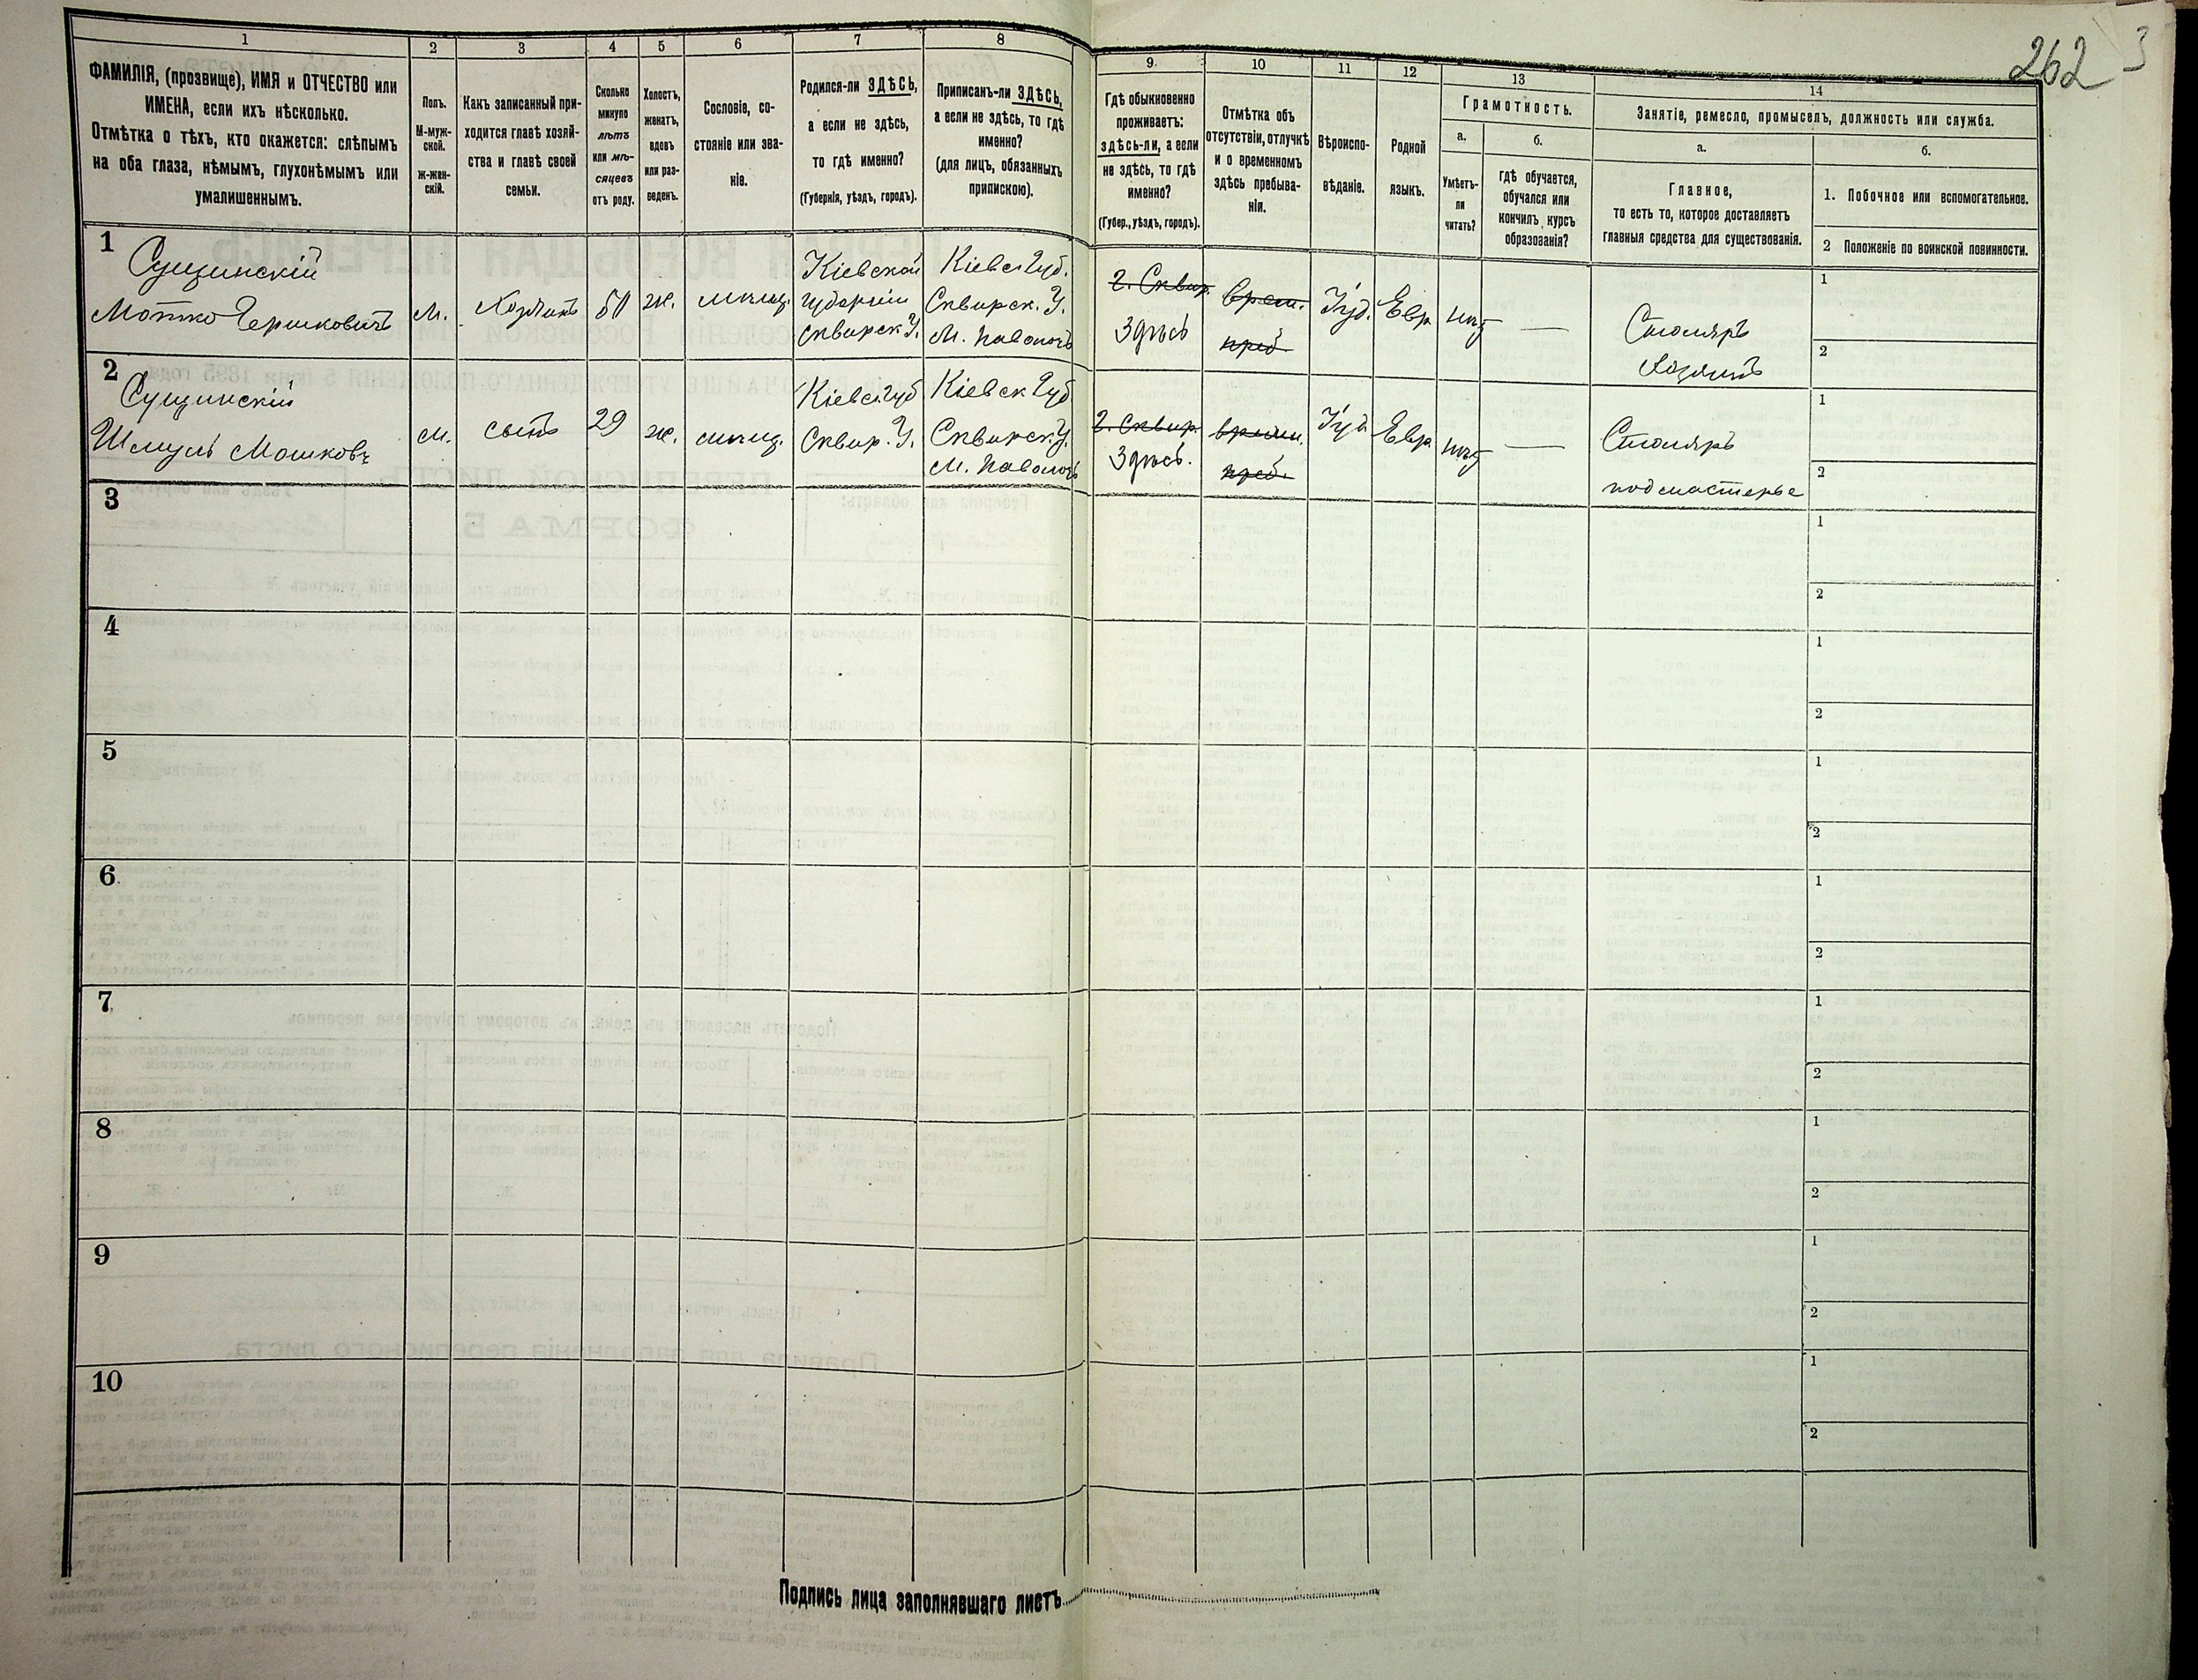 262
3
1
2
3
4
5
6
7
8
9.
10
11
12
13
14
ФАМИЛІЯ, (прозвище), ИМЯ и ОТЧЕСТВО или
ИМЕНА, если ихъ нѣсколько.
Отмѣтка о тѣхъ, кто окажется: слѣпымъ
на оба глаза, нѣмымъ, глухонѣмымъ или
умалишеннымъ.
Полъ.
М-муж-
ской.
ж-жен-
скій.
Какъ записанный при-
ходится главѣ хозяй-
ства и главѣ своей
семьи.
Сколько
минуло
лѣтъ
или мѣ-
сяцевъ
отъ роду.
Холостъ,
женатъ,
вдовъ
или раз-
веденъ.
Сословіе, со-
стояніе или зва-
ніе.
Родился-ли ЗДѢСЬ,
а если не здѣсь,
то гдѣ именно?
(Губернія, уѣздъ, городъ).
Приписанъ-ли ЗДѢСЬ,
а если не здѣсь, то гдѣ
именно?
(для лицъ, обязанныхъ
припискою).
Гдѣ обыкновенно
проживаетъ:
здѣсь-ли, а если
не здѣсь, то гдѣ
именно?
(Губер., уѣздъ, городъ).
Отмѣтка объ
отсутствіи, отлучкѣ
и о временномъ
здѣсь пребыва-
ніи.
Вѣроиспо-
вѣданіе.
Родной
языкъ.
Грамотность.
а.
Умѣетъ-
ли
читать?
б.
гдѣ обучается,
обучался или
кончилъ курсъ
образованія?
Занятіе, ремесло, промыселъ, должность или служба.
а.
Главное,
то есть то, которое доставляетъ
главныя средства для существованія.
б.
1. Побочное или вспомогательное.
2 Положеніе по воинской повинности.
1
Сущинскій
Мотко Гершковичъ
М.
Хозяинъ
50
ж.
мѣщ.
Кіевской
губерніи
Сквирск У.
Кіевс Губ.
Сквирск. У.
М. Паволочь
г. Сквир.
Здѣсь
врем.
преб.
Іуд.
Евр
нѣт
—
Столяръ
Хозяинъ
1
2
2
Сущинскій
Шмуль Мошковъ
М.
сынъ
29
ж.
мѣщ.
Кіевс. губ
Сквир. У.
Кіевск Губ
Сквирск. У.
М. Паволочь
г. Сквир.
Здѣсь.
времен.
преб.
Іуд
Евр
нѣт
—
Столяръ
подмастерье
1
2
3
1
2
4
1
2
5
1
2
6
1
2
7
1
2
8
1
2
9
1
2
10
1
2
Подпись лица заполнявшаго листъ